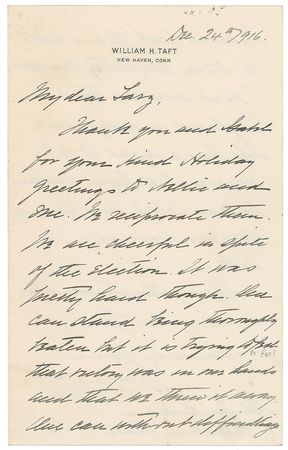 Dec. 24th 1916.
WILLIAM H. TAFT
NEW HAVEN, CONN
My dear
Thank you and
for your kind Holiday
greetings to Nellie and
me. We reciprocate them.
We are cheerful in spite
of the election. It was
pretty hard though. One
can stand being thoroughly
beaten but it is trying to feel
to feel
that victory was in our hands
and that we threw it away.
One can without difficulty